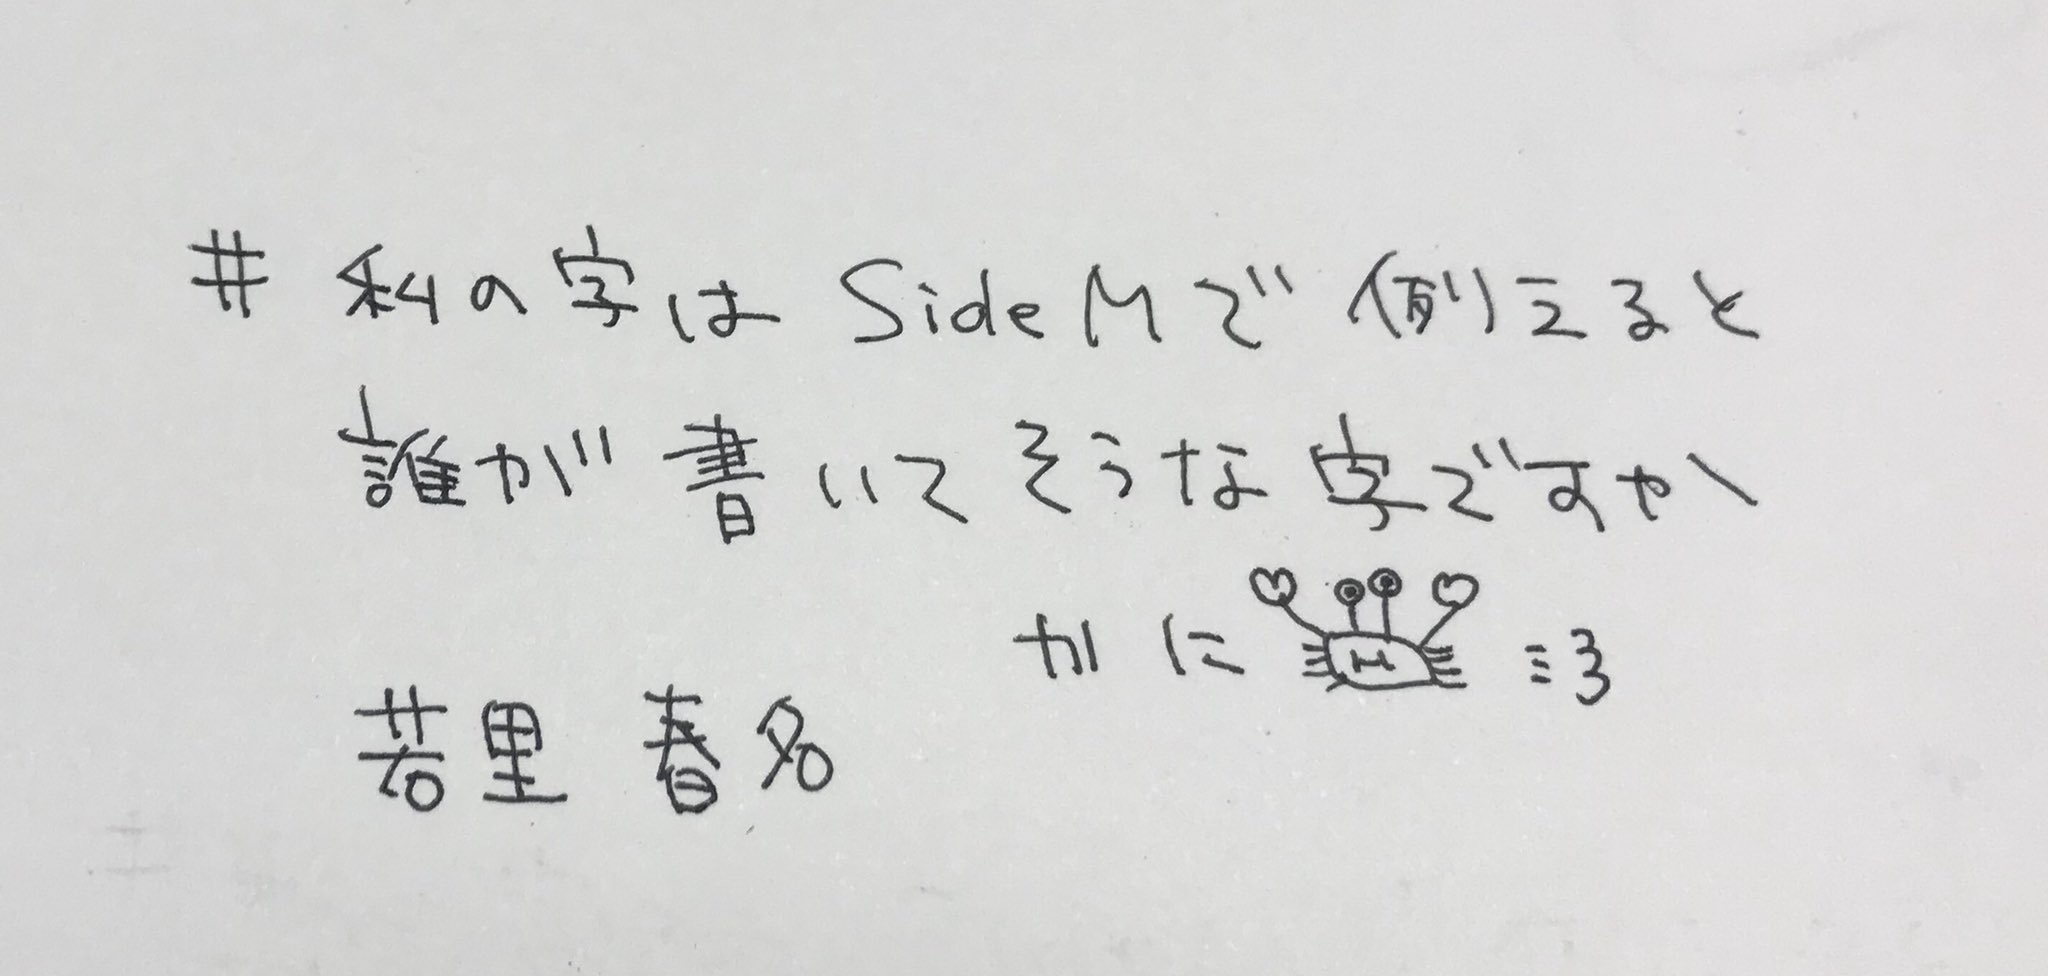 #私の字はSideMで例えると
誰が書いてそうな字ですか
かに ミ3
若里 春名